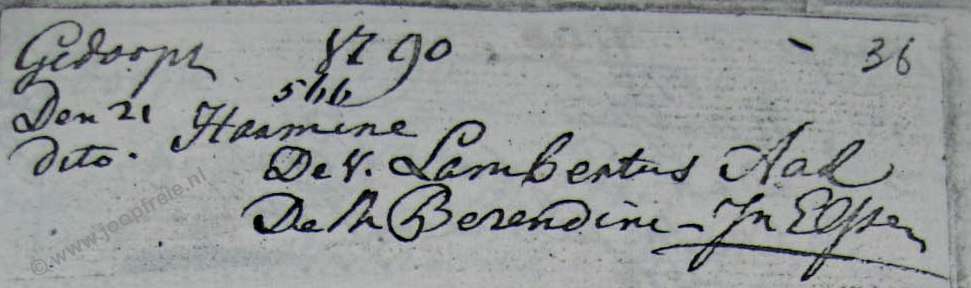 Gedoopt 1790 36
Den 21 566
dito. Harmine
De V. Lambertus Aad
De M Berendine - In Elsen
© www.joopfreie.nl